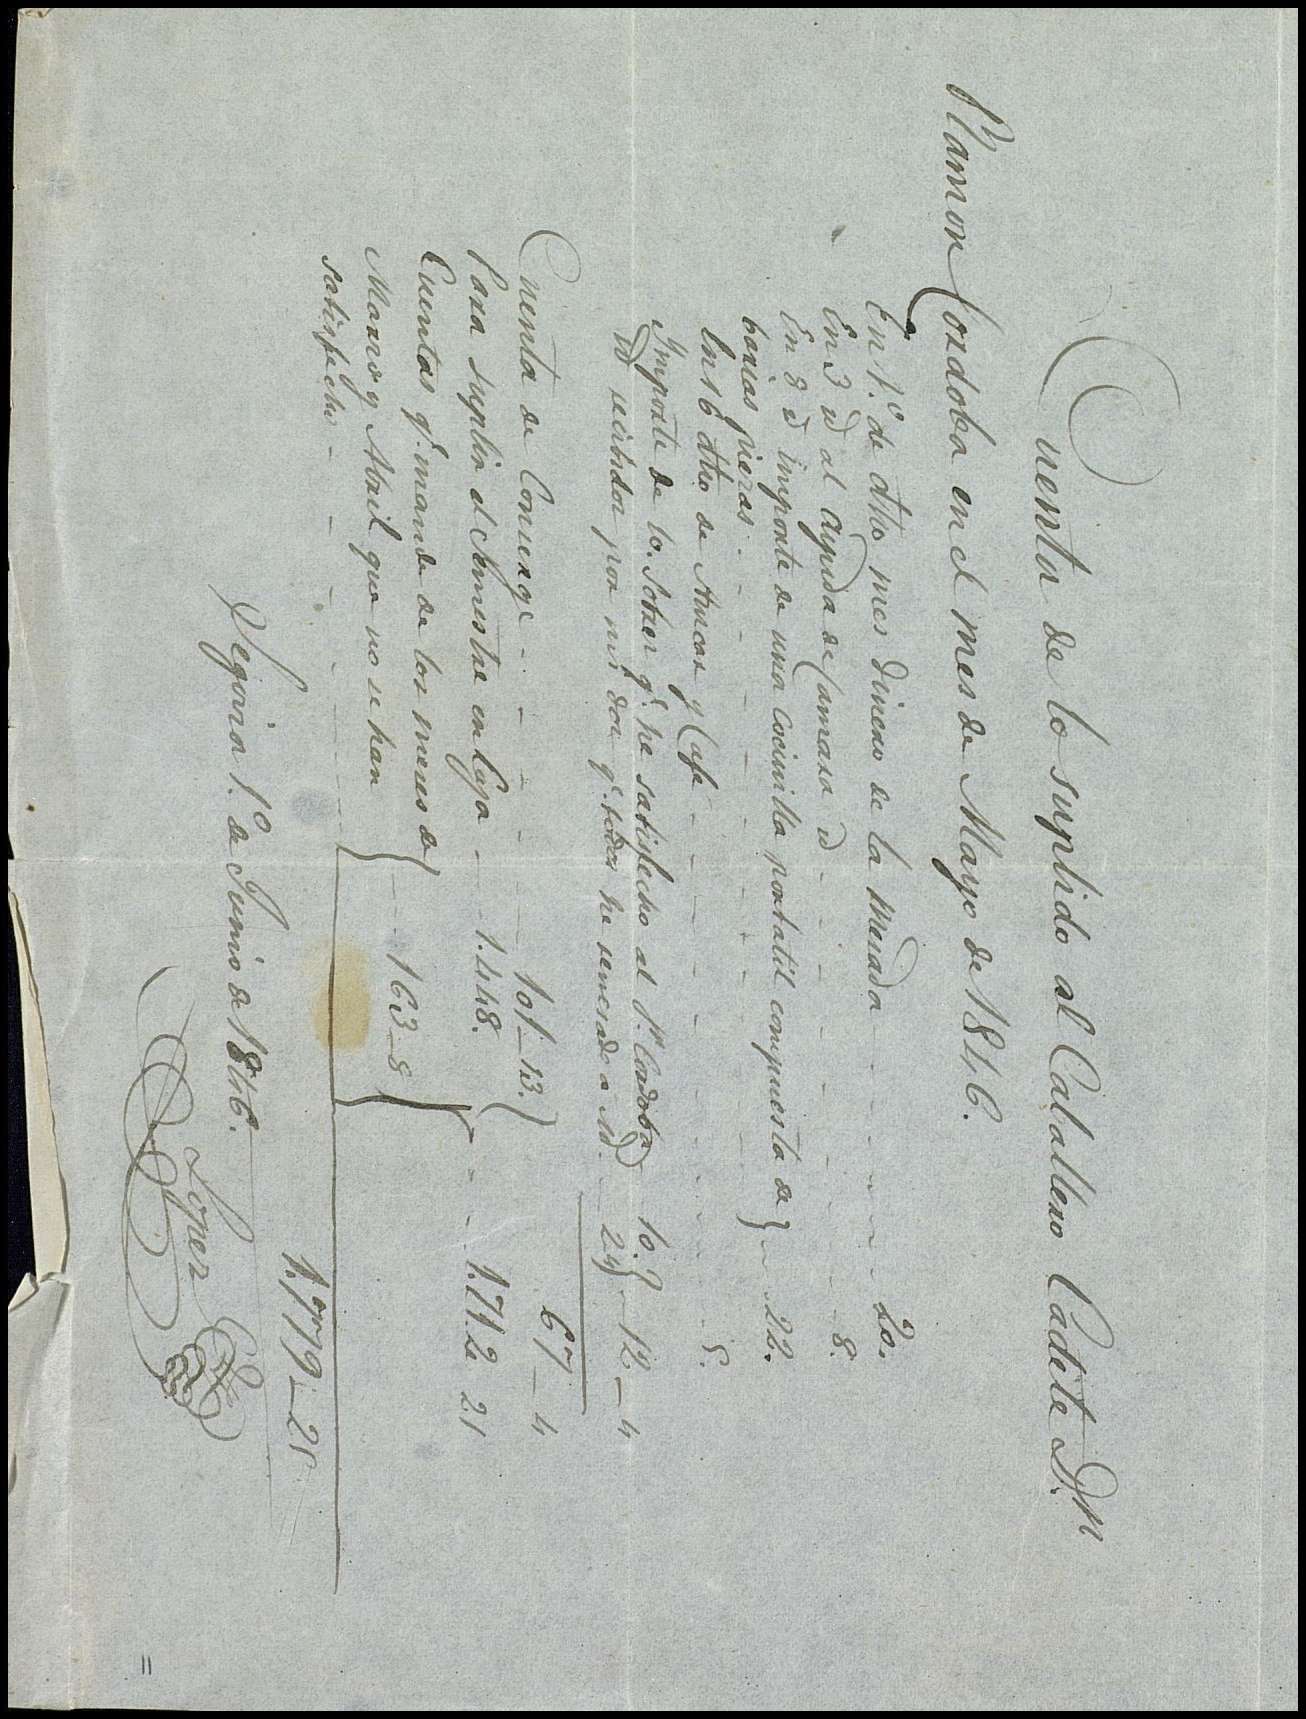 Cuenta de lo suplido al Caballero Cadete Dn
Ramon Cordoba en el mes de Mayo de 1846.
En 1.º de dho mes dinero de la mesada - - - - 20.
En 3 id al Ayuda de Camara id - - - - 8.
En 8 id importe de una cocinilla portatil compuesta de
barias piezas - - - - 22.
En 16 dho de Azucar y Cafe - - - - 5.
Importe de lo. Sobres q.e he satisfecho al Sr. Cordoba 10.
id recibidos por mi q.e todos he remesado a 24 - 12 - 4
67 - 4
Cuenta de Conserge - - - - 101 - 13.
Para suplir el Semestre en Caja - 1.448. - - - 1.712. 21
Cuentas q.e mande de los meses de
Marzo y Abril que no se han - - 163 - 8
satisfecho - - - -
1.779 - 25
Vergara 1.º de Junio de 1846.
Lopez
11